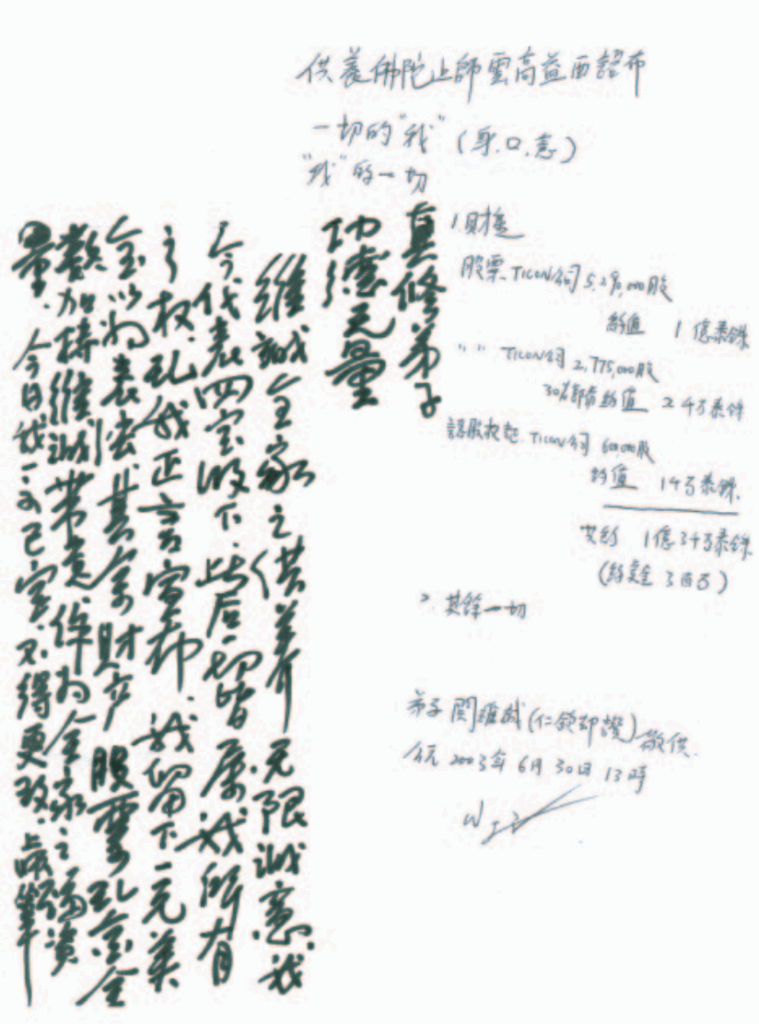 供養佛陀上師雲高益西諾布
一切的"我"(身.口.意)
"我"的一切
1.財產
股票 TICON公司 5,290,000股
約值 1億泰銖
" " TICON公司 2,775,000股
30%部有約值 2千万泰銖
認股权 TICON公司 60,000股
約值 1千万泰銖
共約 1億3千万泰銖
(約美金 3百万)
2. 其餘一切
弟子 関維誠(仁欽却)敬供
公元 2003年 6月 30日 13時
真修弟子
功德无量
維誠全家之供养无限誠意.我
今代表四宝收下.此后一切皆属我所有
之权.现我正言宣布.我留下一元美
金以为表法.其余财产股票现金全
数加持維誠带走作为全家之福资
量.今日我言已定.不得更改.